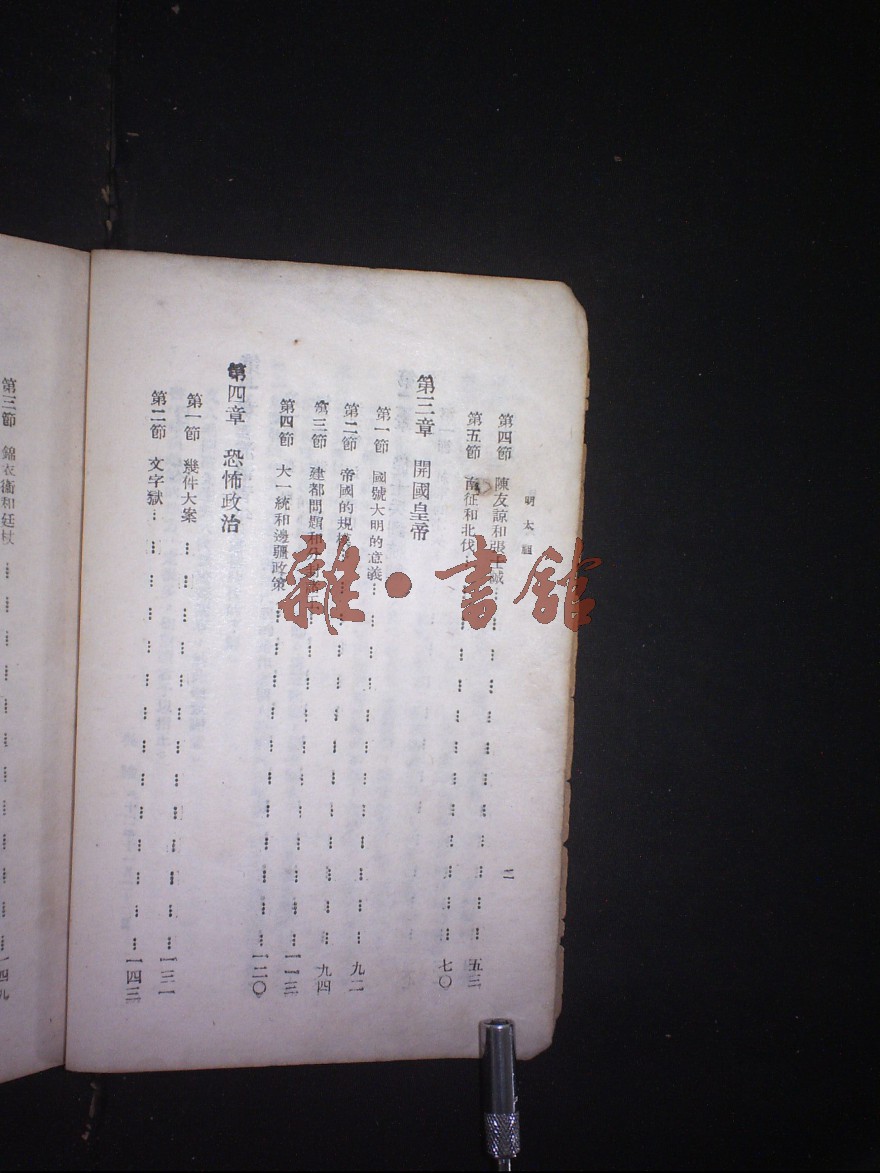 明太祖
二
第四節 陳友諒和張士誠 …… 五三
第五節 南征和北伐 …… 七〇
第三章 開國皇帝
第一節 國號大明的意義 …… 九二
第二節 帝國的規 …… 九四
第三節 建都問題和分封 …… 一一三
第四節 大一統和邊疆政策 …… 一二〇
第四章 恐怖政治
第一節 幾件大案 …… 一三一
第二節 文字獄 …… 一四三
第三節 錦衣衛和廷杖 …… 一四九
雜·書館